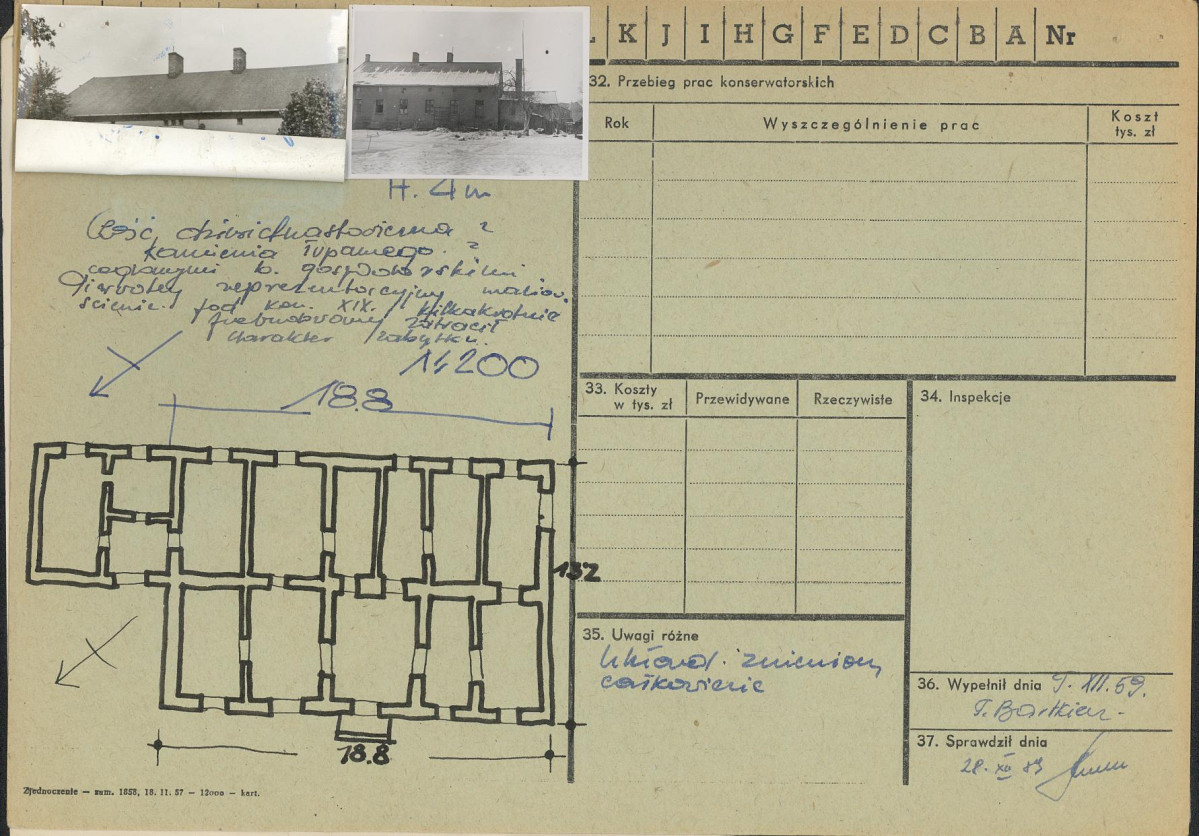 K J I H G F E D C B A Nr
32. Przebieg prac konserwatorskich
Rok
Wyszczególnienie prac
Koszt
tys. zł
H. 4m
Część dziewiętnastowieczna z
kamienia łupanego z
ceglanymi b. gospodarskimi
reprezentacyjny
pod kon. XIX. kilkakrotnie
przebudowany zatracił
charakter zabytku.
1:200
18.8
132
18.8
33. Koszty
w tys. zł
Przewidywane
Rzeczywiste
34. Inspekcje
35. Uwagi różne
Układ zmieniony
całkowicie
36. Wypełnił dnia 9. XII. 59.
T. Bartkiew
37. Sprawdził dnia
28. XII 59
Zjednoczenie — zam. 1858, 18. 11. 57 — 12000 — kart.